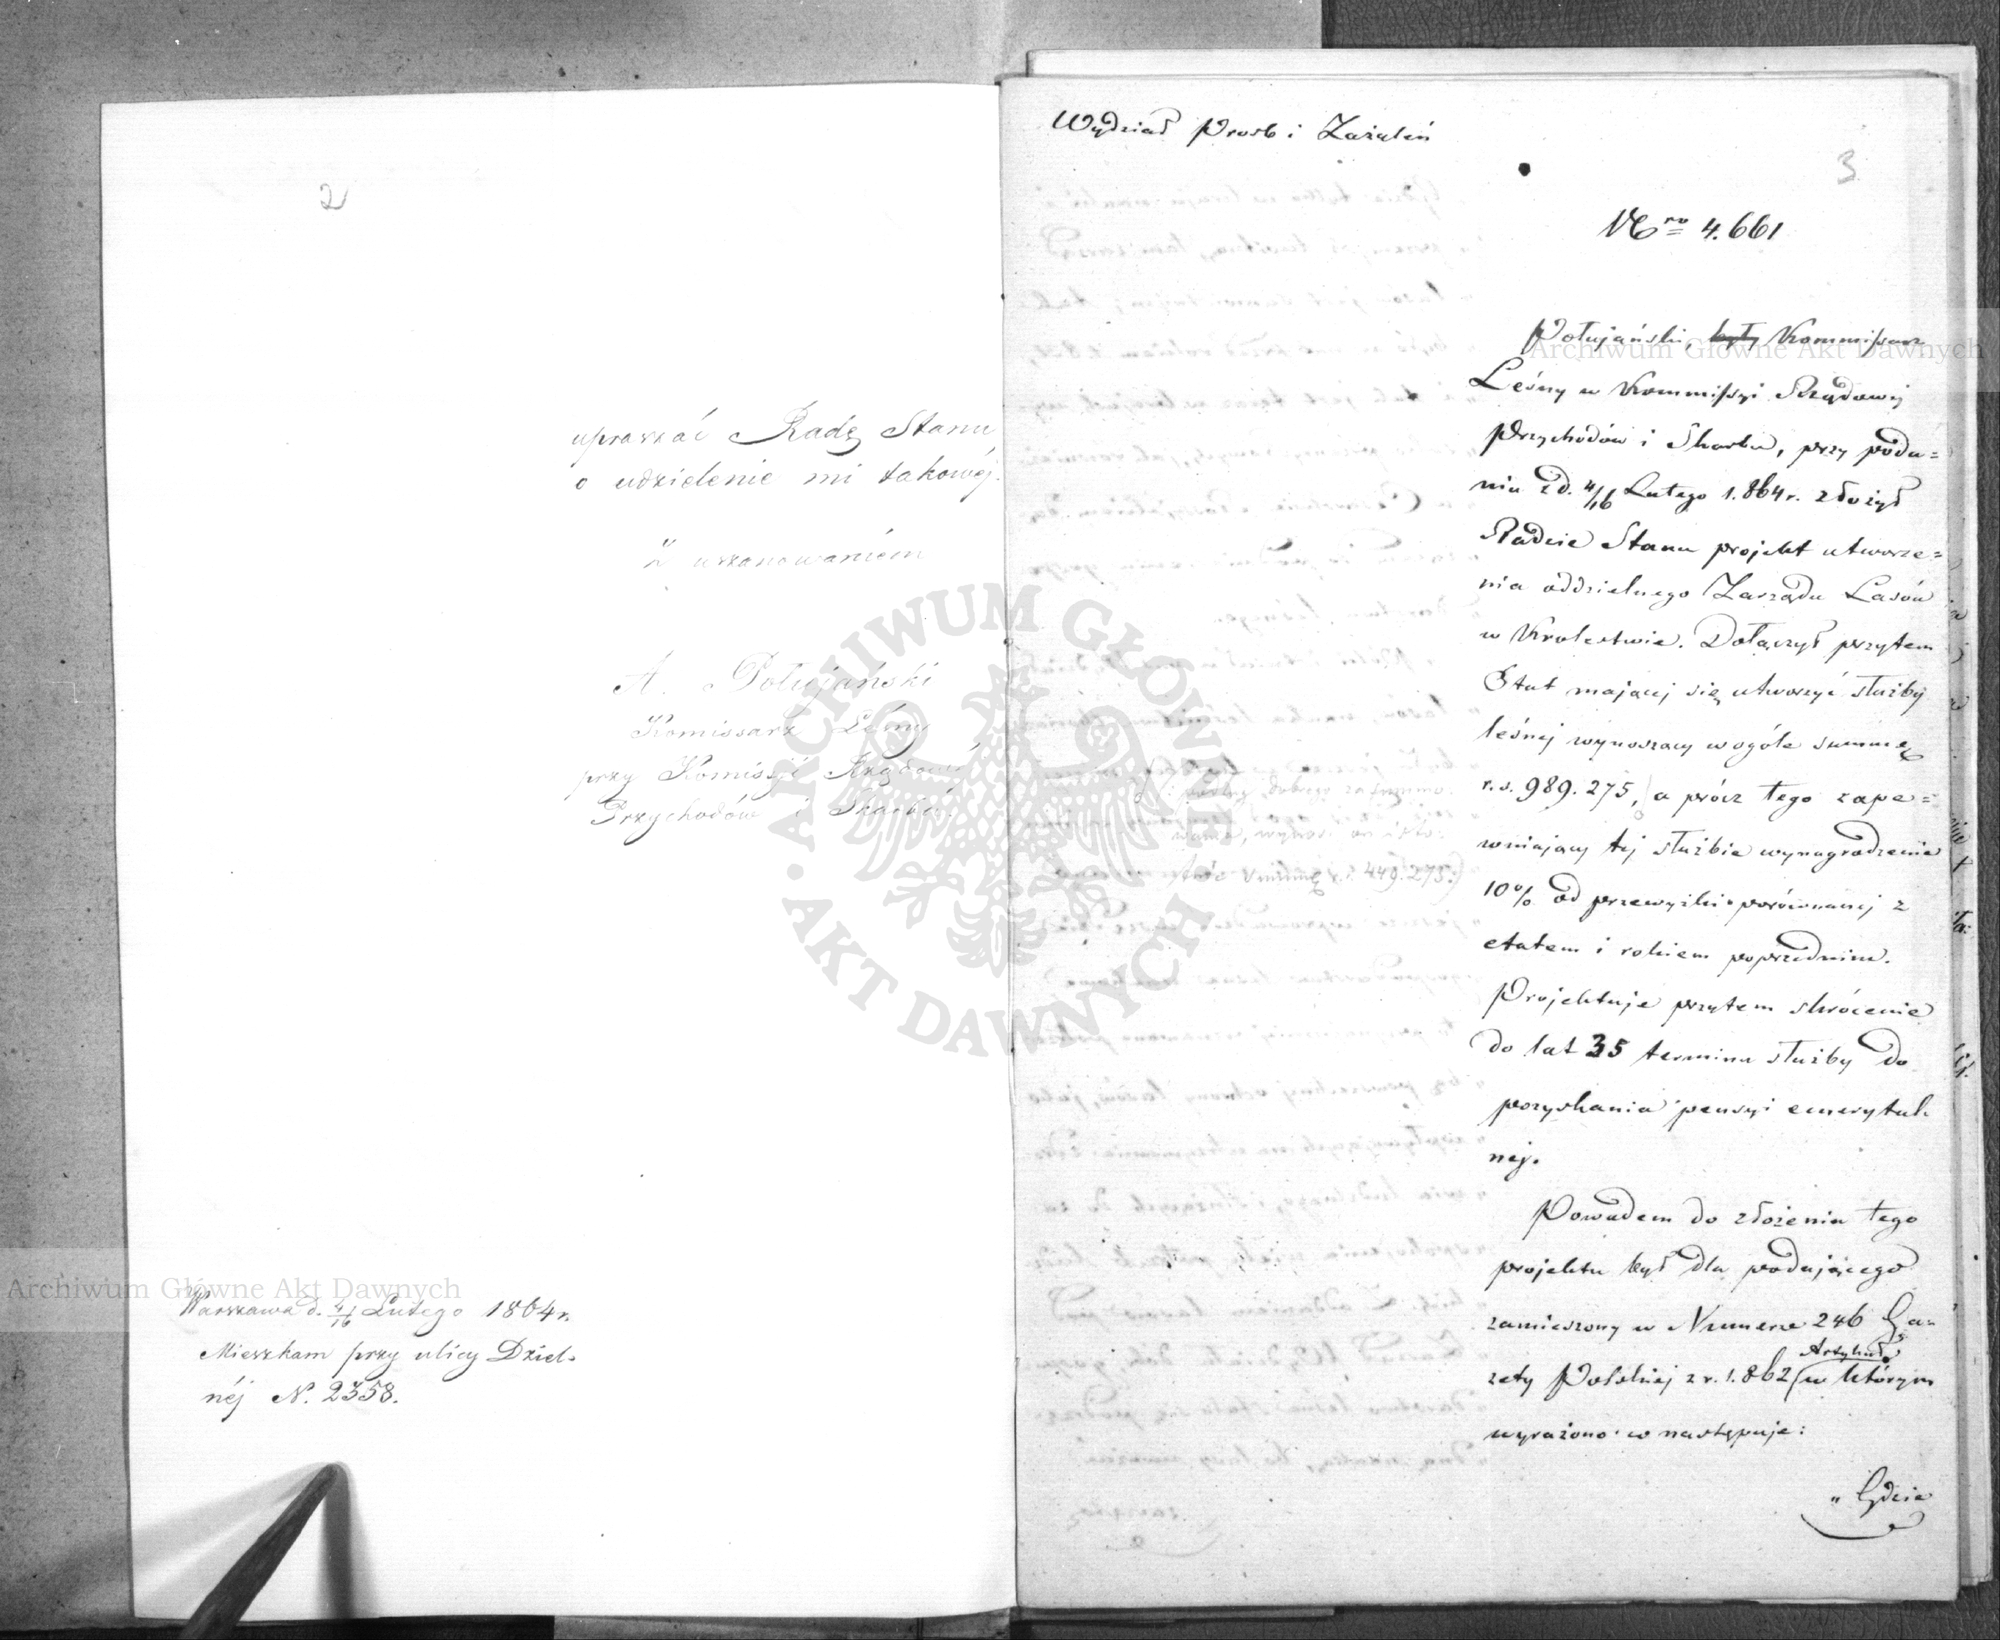 2
upraszać Radę Stanu
o udzielenie mi takowéj.
Z uszanowaniem
A. Połujański
Komissarz Leśny
przy Komissji Rządowéj
Przychodów i Skarbu.
Warszawa d. 4/16 Lutego 1864 r.
Mieszkam przy ulicy Dziel-
néj N. 2358.
Wydział Prośb i Zażaleń
3
Nro 4.661
Połujański, były Kommissarz
Leśny w Kommissyi Rządowej
Przychodów i Skarbu, przy poda=
niu z d. 4/16 Lutego 1.864 r. złożył
Radzie Stanu projekt utworze=
nia oddzielnego Zarządu Lasów
w Królestwie. Dołączył przytem
Etat mającej się utworzyć służby
leśnej wynoszący wogóle summę
r.s. 989.275, a prócz tego zape=
wniający tej służbie wynagrodzenie
10% od przewyżki porównanej z
etatem i rokiem poprzednim.
(: podług dobrego za trzymo
wania, wynosi on isto
tnie summę r.s. 449.275:)
Projektuje przytem skrócenie
do lat 35 terminu służby do
pozyskania pensyi emerytal-
nej.
Powodem do złożenia tego
projektu był dla podającego
zamieszczony w Numerze 246 Ga=
zety Polskiej z r. 1.862 Artykuł w którym
wyrażono co następuje:
„Gdzie
Archiwum Główne Akt Dawnych
Archiwum Główne Akt Dawnych
ARCHIWUM GŁÓWNE AKT DAWNYCH